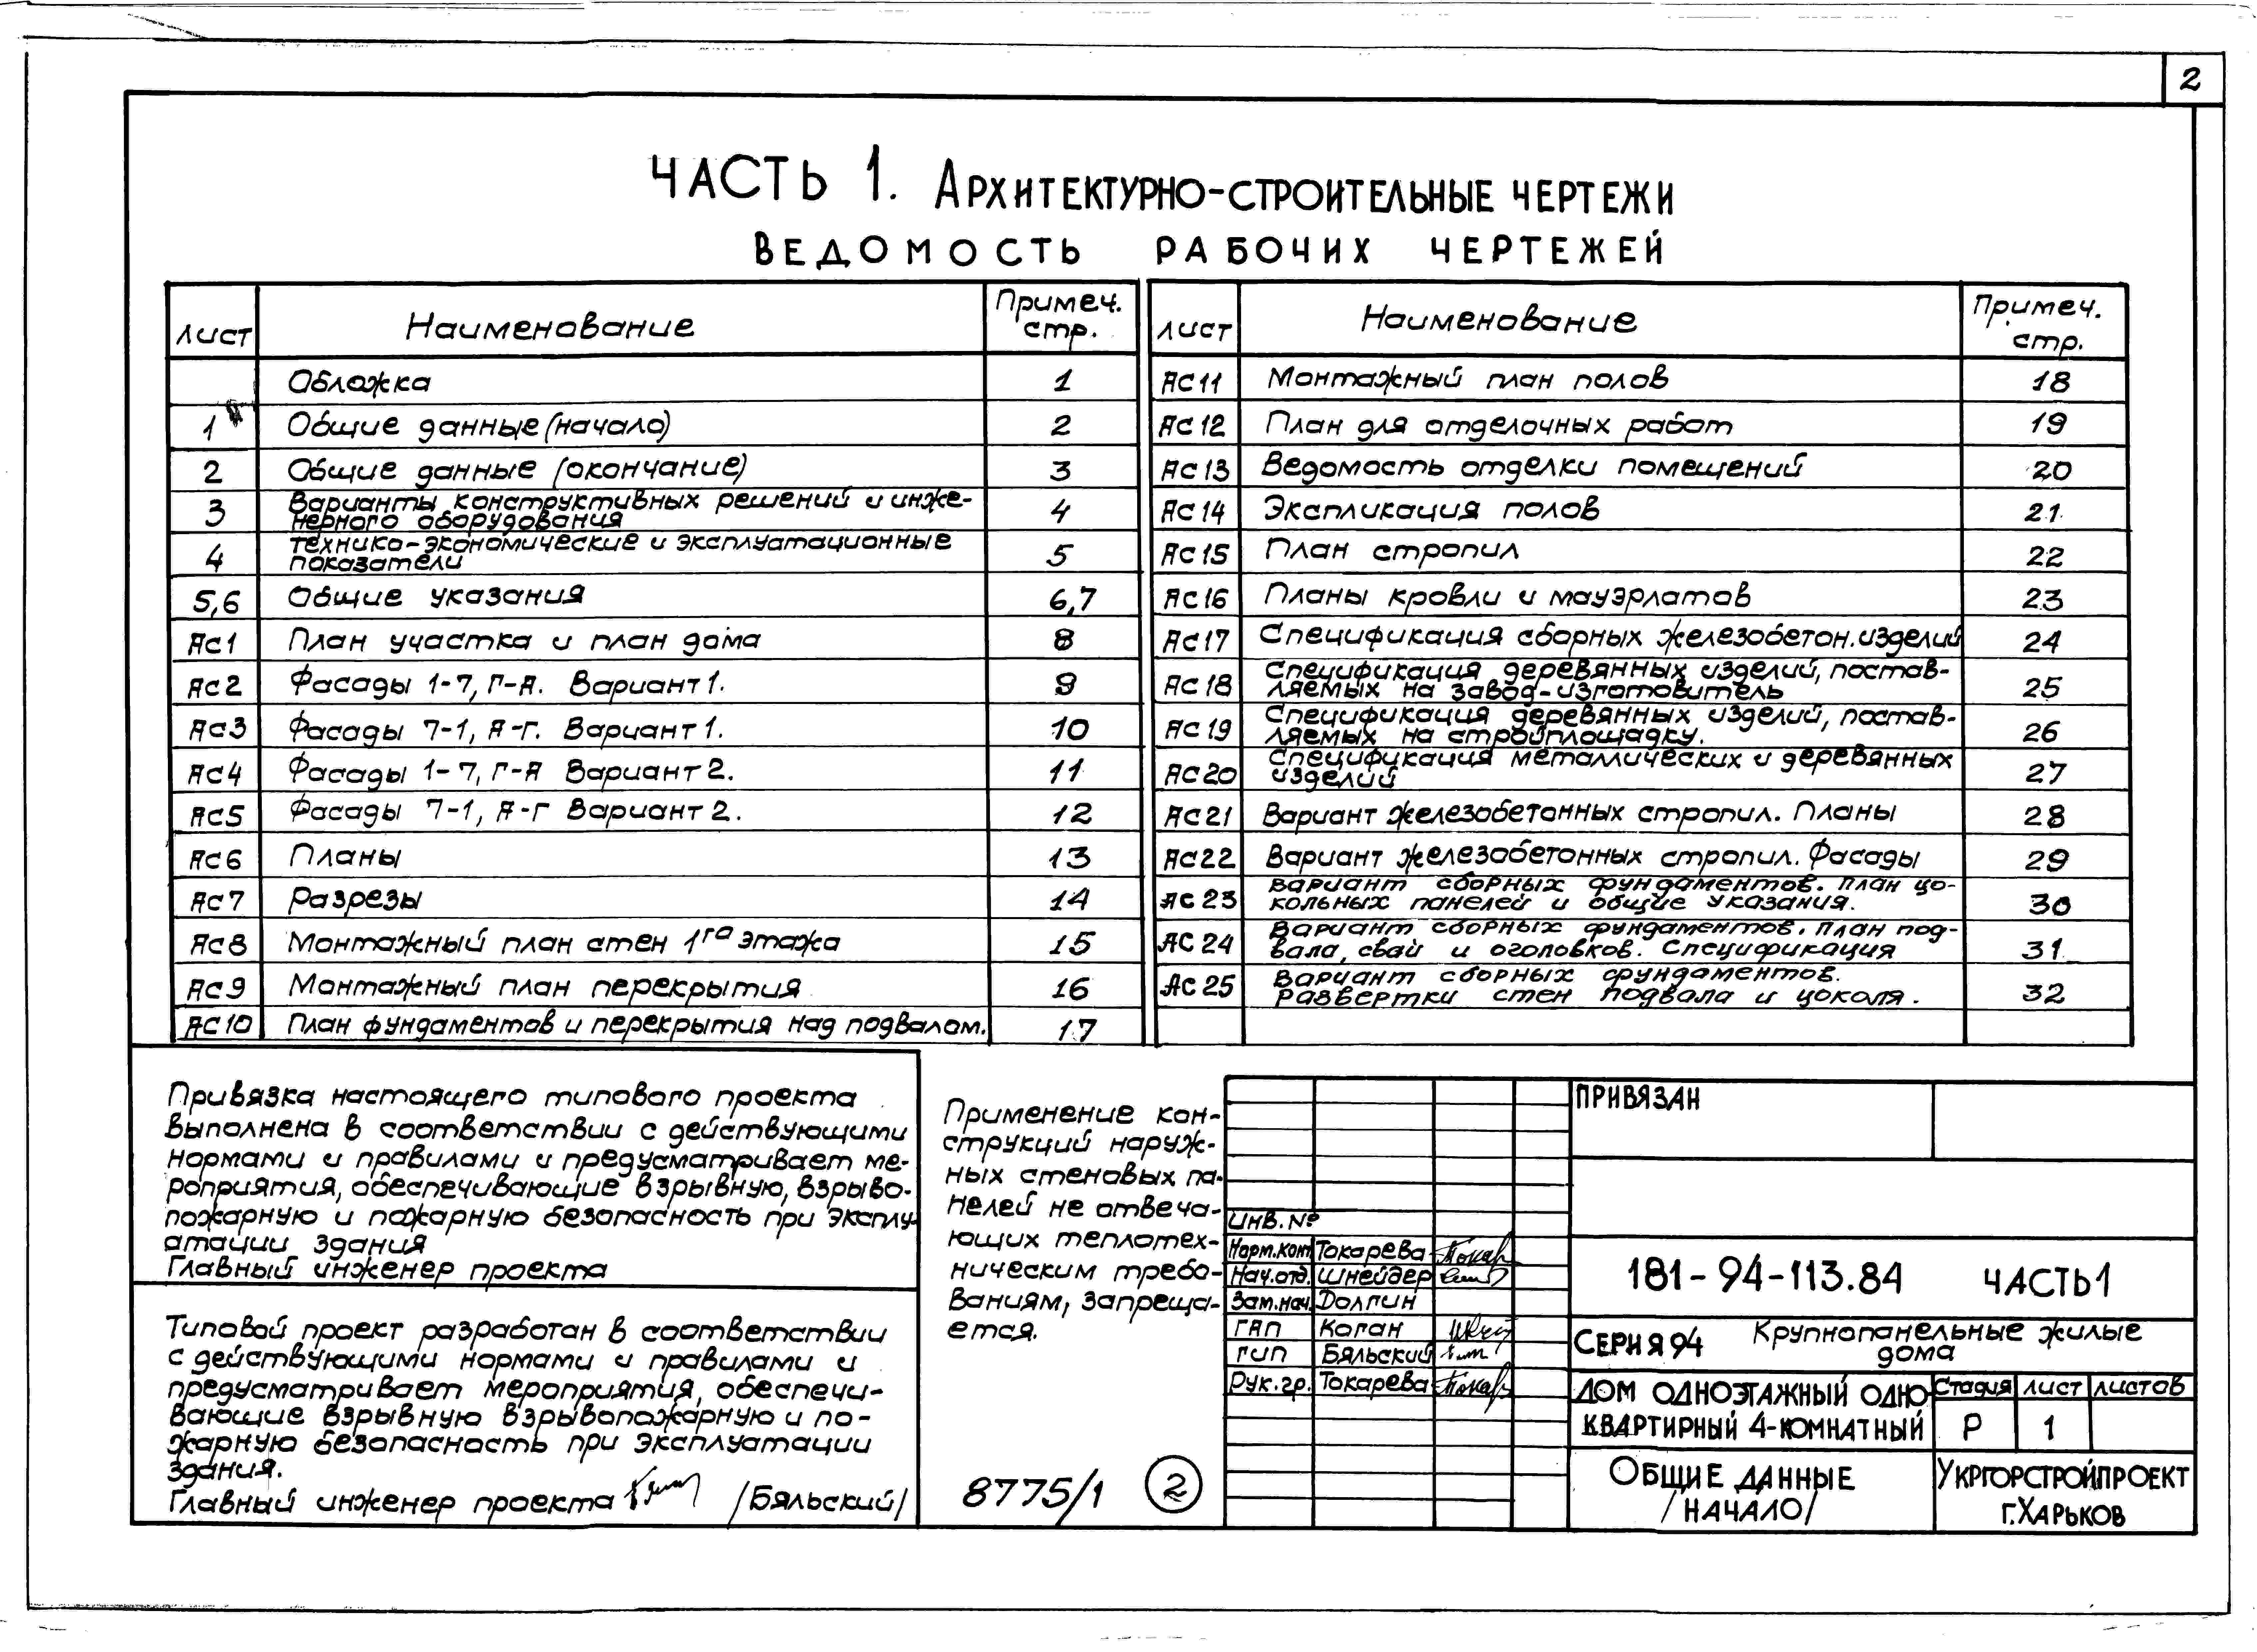 2
ЧАСТЬ 1. АРХИТЕКТУРНО-СТРОИТЕЛЬНЫЕ ЧЕРТЕЖИ
ВЕДОМОСТЬ РАБОЧИХ ЧЕРТЕЖЕЙ
Лист Наименование Примеч. стр.
Обложка 1
1 Общие данные (начало) 2
2 Общие данные (окончание) 3
3 Варианты конструктивных решений и инже-
нерного оборудования 4
4 Технико-экономические и эксплуатационные
показатели 5
5,6 Общие указания 6,7
АС1 План участка и план дома 8
АС2 Фасады 1-7, Г-А. Вариант 1. 9
АС3 Фасады 7-1, А-Г. Вариант 1. 10
АС4 Фасады 1-7, Г-А Вариант 2. 11
АС5 Фасады 7-1, А-Г Вариант 2. 12
АС6 Планы 13
АС7 Разрезы 14
АС8 Монтажный план стен 1го этажа 15
АС9 Монтажный план перекрытия 16
АС10 План фундаментов и перекрытия над подвалом. 17
Лист Наименование Примеч. стр.
АС11 Монтажный план полов 18
АС12 План для отделочных работ 19
АС13 Ведомость отделки помещений 20
АС14 Экспликация полов 21
АС15 План стропил 22
АС16 Планы кровли и мауэрлатов 23
АС17 Спецификация сборных железобетон. изделий 24
АС18 Спецификация деревянных изделий, постав-
ляемых на завод-изготовитель 25
АС19 Спецификация деревянных изделий, постав-
ляемых на стройплощадку. 26
АС20 Спецификация металлических и деревянных
изделий 27
АС21 Вариант железобетонных стропил. Планы 28
АС22 Вариант железобетонных стропил. Фасады 29
АС23 Вариант сборных фундаментов. План цо-
кольных панелей и общие указания. 30
АС24 Вариант сборных фундаментов. План под-
вала, свай и оголовков. Спецификация 31
АС25 Вариант сборных фундаментов.
Развертки стен подвала и цоколя. 32
Привязка настоящего типового проекта
выполнена в соответствии с действующими
нормами и правилами и предусматривает ме-
роприятия, обеспечивающие взрывную, взрыво-
пожарную и пожарную безопасность при эксплу-
атации здания
Главный инженер проекта
Типовой проект разработан в соответствии
с действующими нормами и правилами и
предусматривает мероприятия, обеспечи-
вающие взрывную взрывопожарную и по-
жарную безопасность при эксплуатации
здания.
Главный инженер проекта /Бяльский/
Применение кон-
струкций наруж-
ных стеновых па-
нелей не отвеча-
ющих теплотех-
ническим требо-
ваниям, запреща-
ется.
8775/1 2
Инв. №
Норм.кон. Токарева
Нач.отд. Шнейдер
Зам.нач. Долгин
ГАП Коган
ГИП Бяльский
Рук.гр. Токарева
ПРИВЯЗАН
181-94-113.84 ЧАСТЬ 1
СЕРИЯ 94 Крупнопанельные жилые
дома
ДОМ ОДНОЭТАЖНЫЙ ОДНО-
КВАРТИРНЫЙ 4-КОМНАТНЫЙ
Стадия Лист Листов
Р 1
ОБЩИЕ ДАННЫЕ
/НАЧАЛО/
УКРГОРСТРОЙПРОЕКТ
г. ХАРЬКОВ